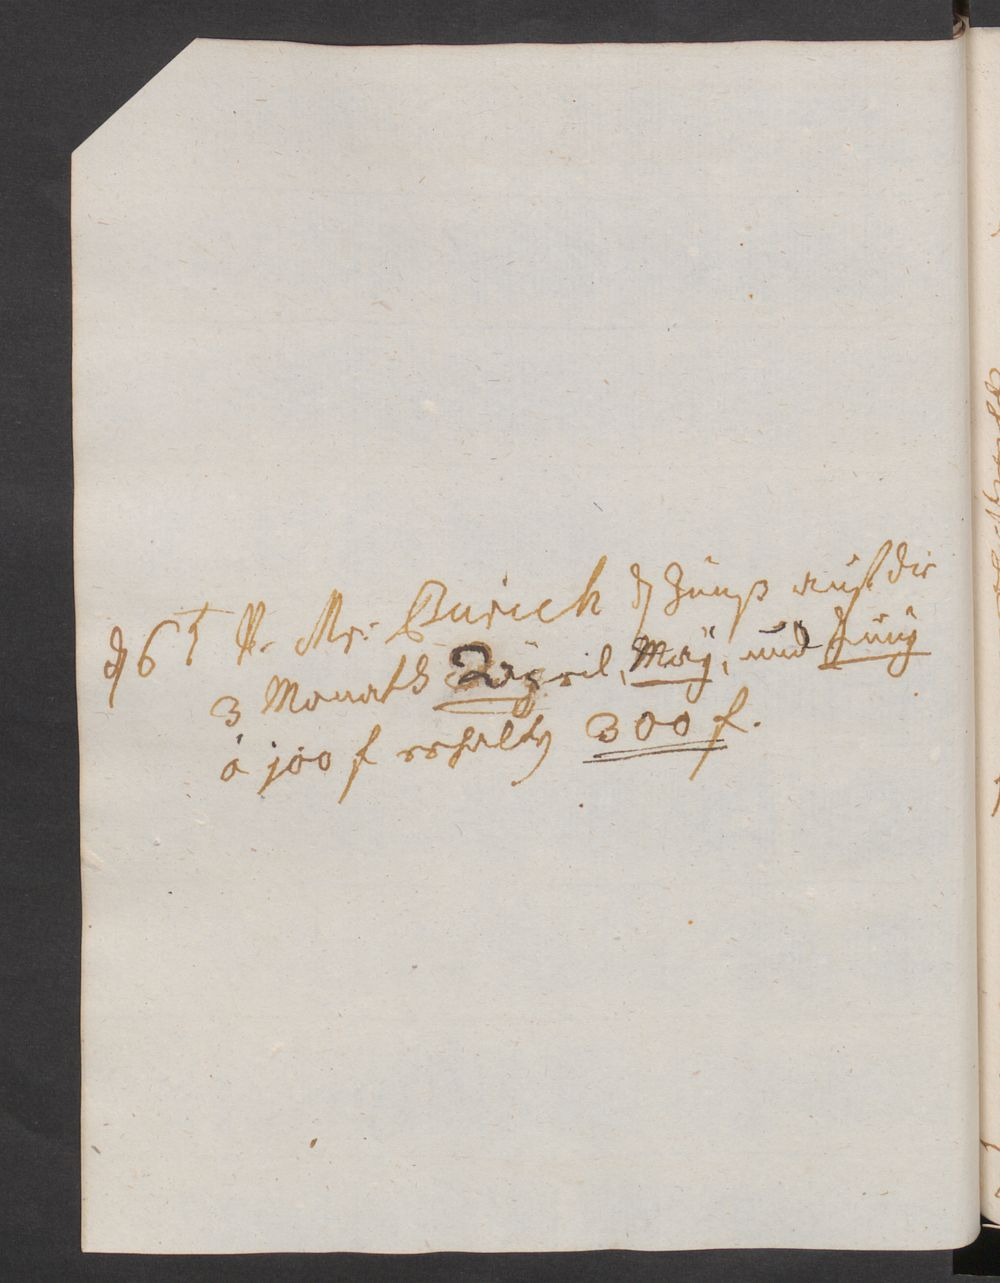 d 6t P. Mr: Burich d Zinß auf die
3 Monath April, Maÿ, und Junÿ
à 100 f erhalten 300 f.